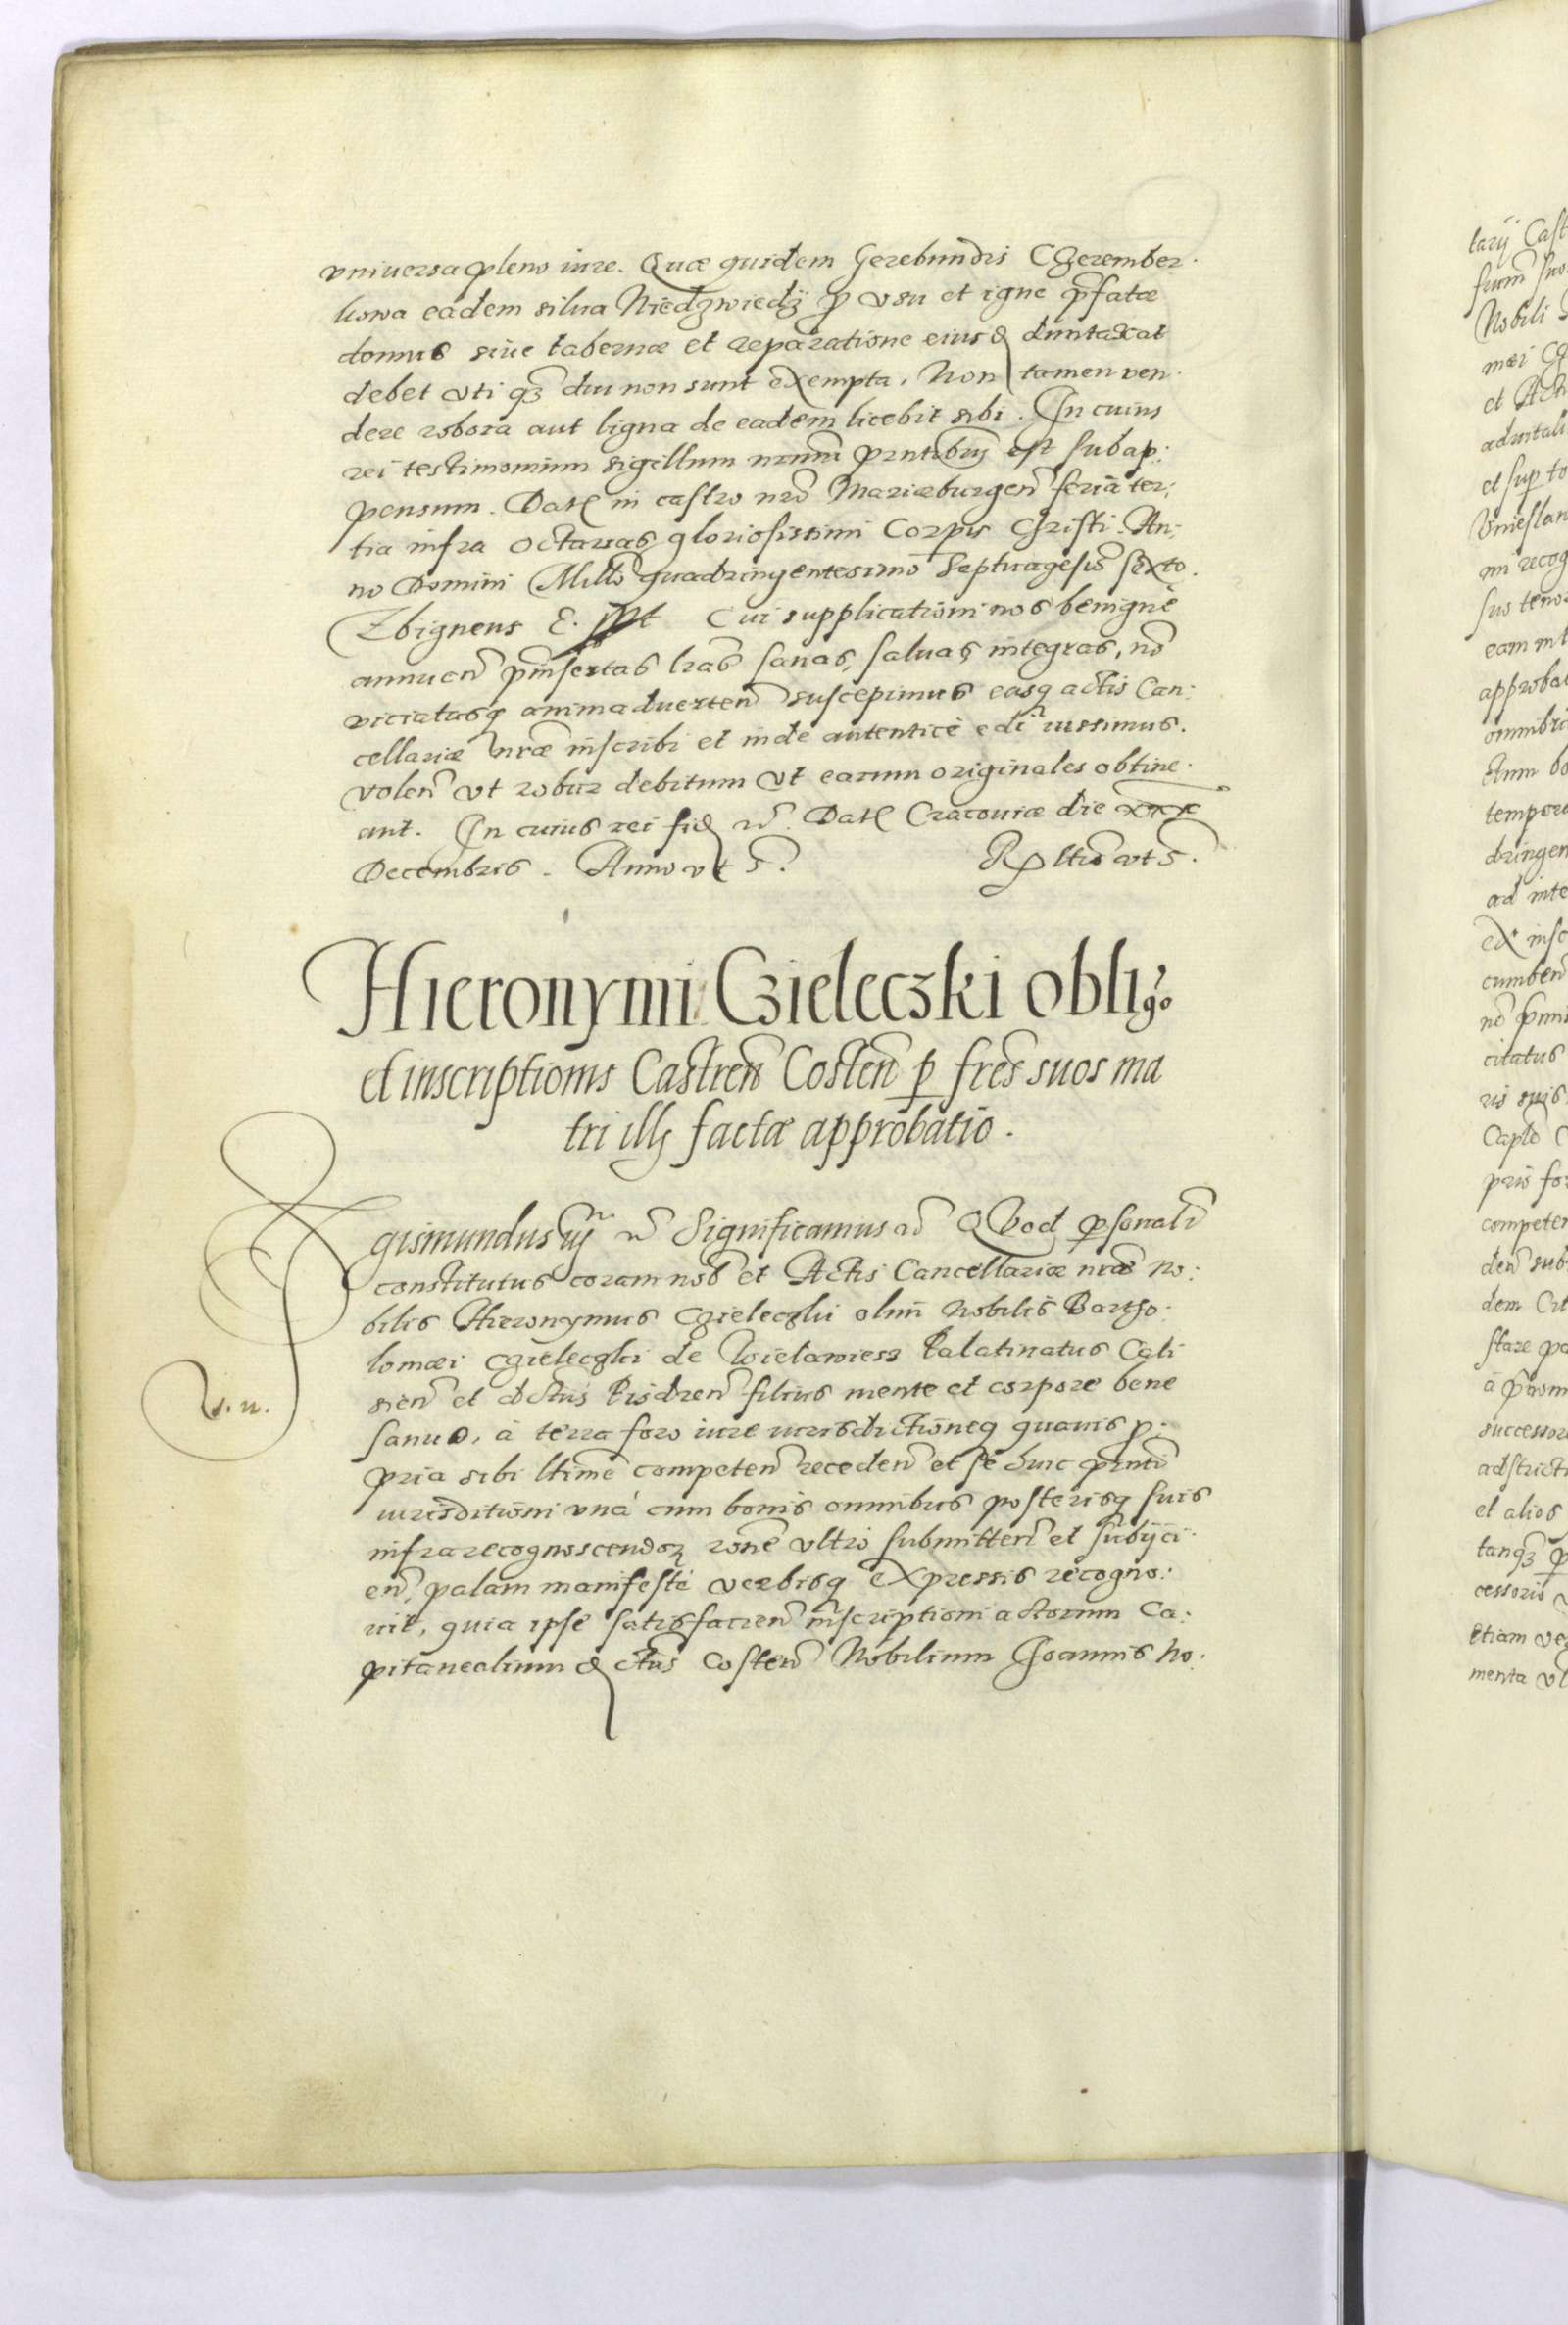 vniuersa pleno iure. Quæ quidem Gerebundis Czerember-
kowa eadem silua Niedzwiedz p vsu et igne pfatæ
domus siue tabernæ et reparatione eiusd duntaxat
debet vti qz diu non sunt exempta. Non tamen ven-
dere robora aut ligna de eadem licebit sibi. In cuius
rei testimonium sigillum nrum pntibus est subap:
pensum. Dat in castro nro Mariæburgen feria ter:
tia infra octauas gloriosissimi Corpis Christi. An:
no Domini Millo quadringentesimo septuagesio sexto.
Zbigneus E. Cui supplicationi nos benignè
annuen pinsertas lras sanas, saluas integras, no
viciatasq animaduerten suscepimus easq actis Can:
cellariæ nræ inscribi et inde autenticè edi iussimus.
volen vt robur debitum vt earum originales obtine-
ant. In cuius rei fid Dat Cracouiæ die xxx
Decembris. Anno vt s. Rltio vt s.
Hieronymi Czieleczki oblig
et inscriptionis Castren Costen p fres suos ma
tri illi factæ approbatio.
Sigismundus iij Significamus Quod psonalr
constitutus coram nob et Actis Cancellariæ nræ no:
bilis Hieronymus Czieleczki olim nobilis Bartho:
lomæi Czieleczki de Wielawiess Palatinatus Cali
sien et dctus Pisdren filius mente et corpore bene
sanus, à terra foro iure iurisdictioneq quauis p:
pria sibi ltime competen receden et se huic pnti
iurisditioni vnà cum bonis omnibus posterisq suis
infrarecognoscendor rone vltro submitten et subijci-
en, palam manifestè verbisq expressis recogno:
uit, quia ipse satisfacien inscriptioni actorum Ca:
pitanealium dctus Costen Nobilium Joannis No:
V. n.
larij Cast
suum suo
Nobili
mæi Cz
et Acti
aduitali
et sup to
mi recog
suo teno
eam int
approbat
omnibu
tempore
dringen
ad inte
ex insc
cumben
citatus
ris suis
Caplo
competen
den sub
dem Cit
stare pa
successor
adstrict
et alios
tanqz p
cessorio
etiam ve
menta vl